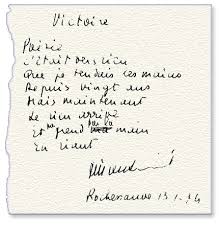 Victoire
Poésie
C'était vers rien
Que je tendais ces mains
Depuis vingt ans
Mais maintenant
Le rien arrive
Et prend par la main
En riant
Rochesauve 13.1.74